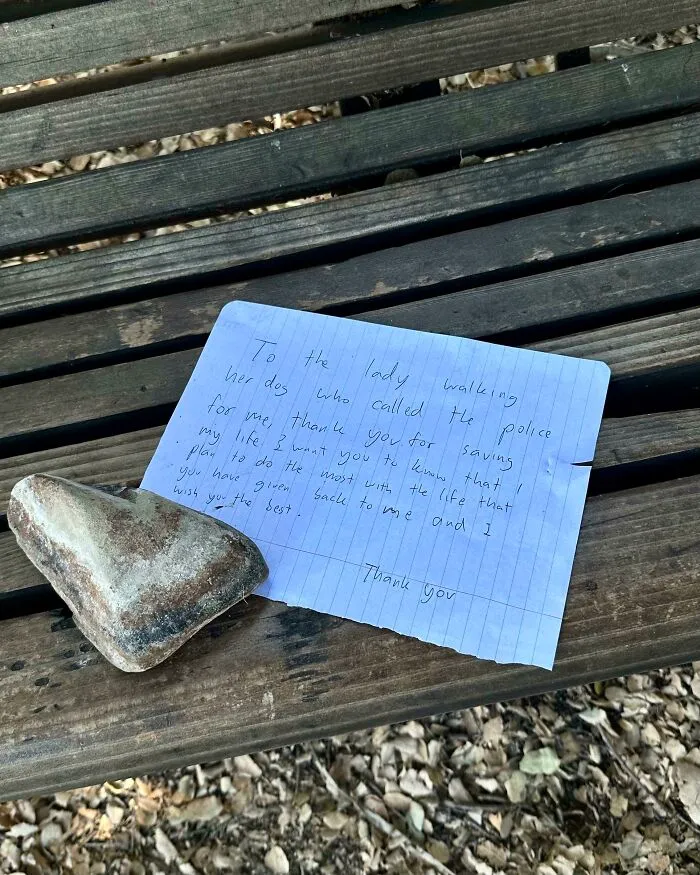 To the lady walking
her dog who called the police
for me, thank you for saving
my life. I want you to know that I
plan to do the most with the life that
you have given back to me and I
wish you the best.
Thank you